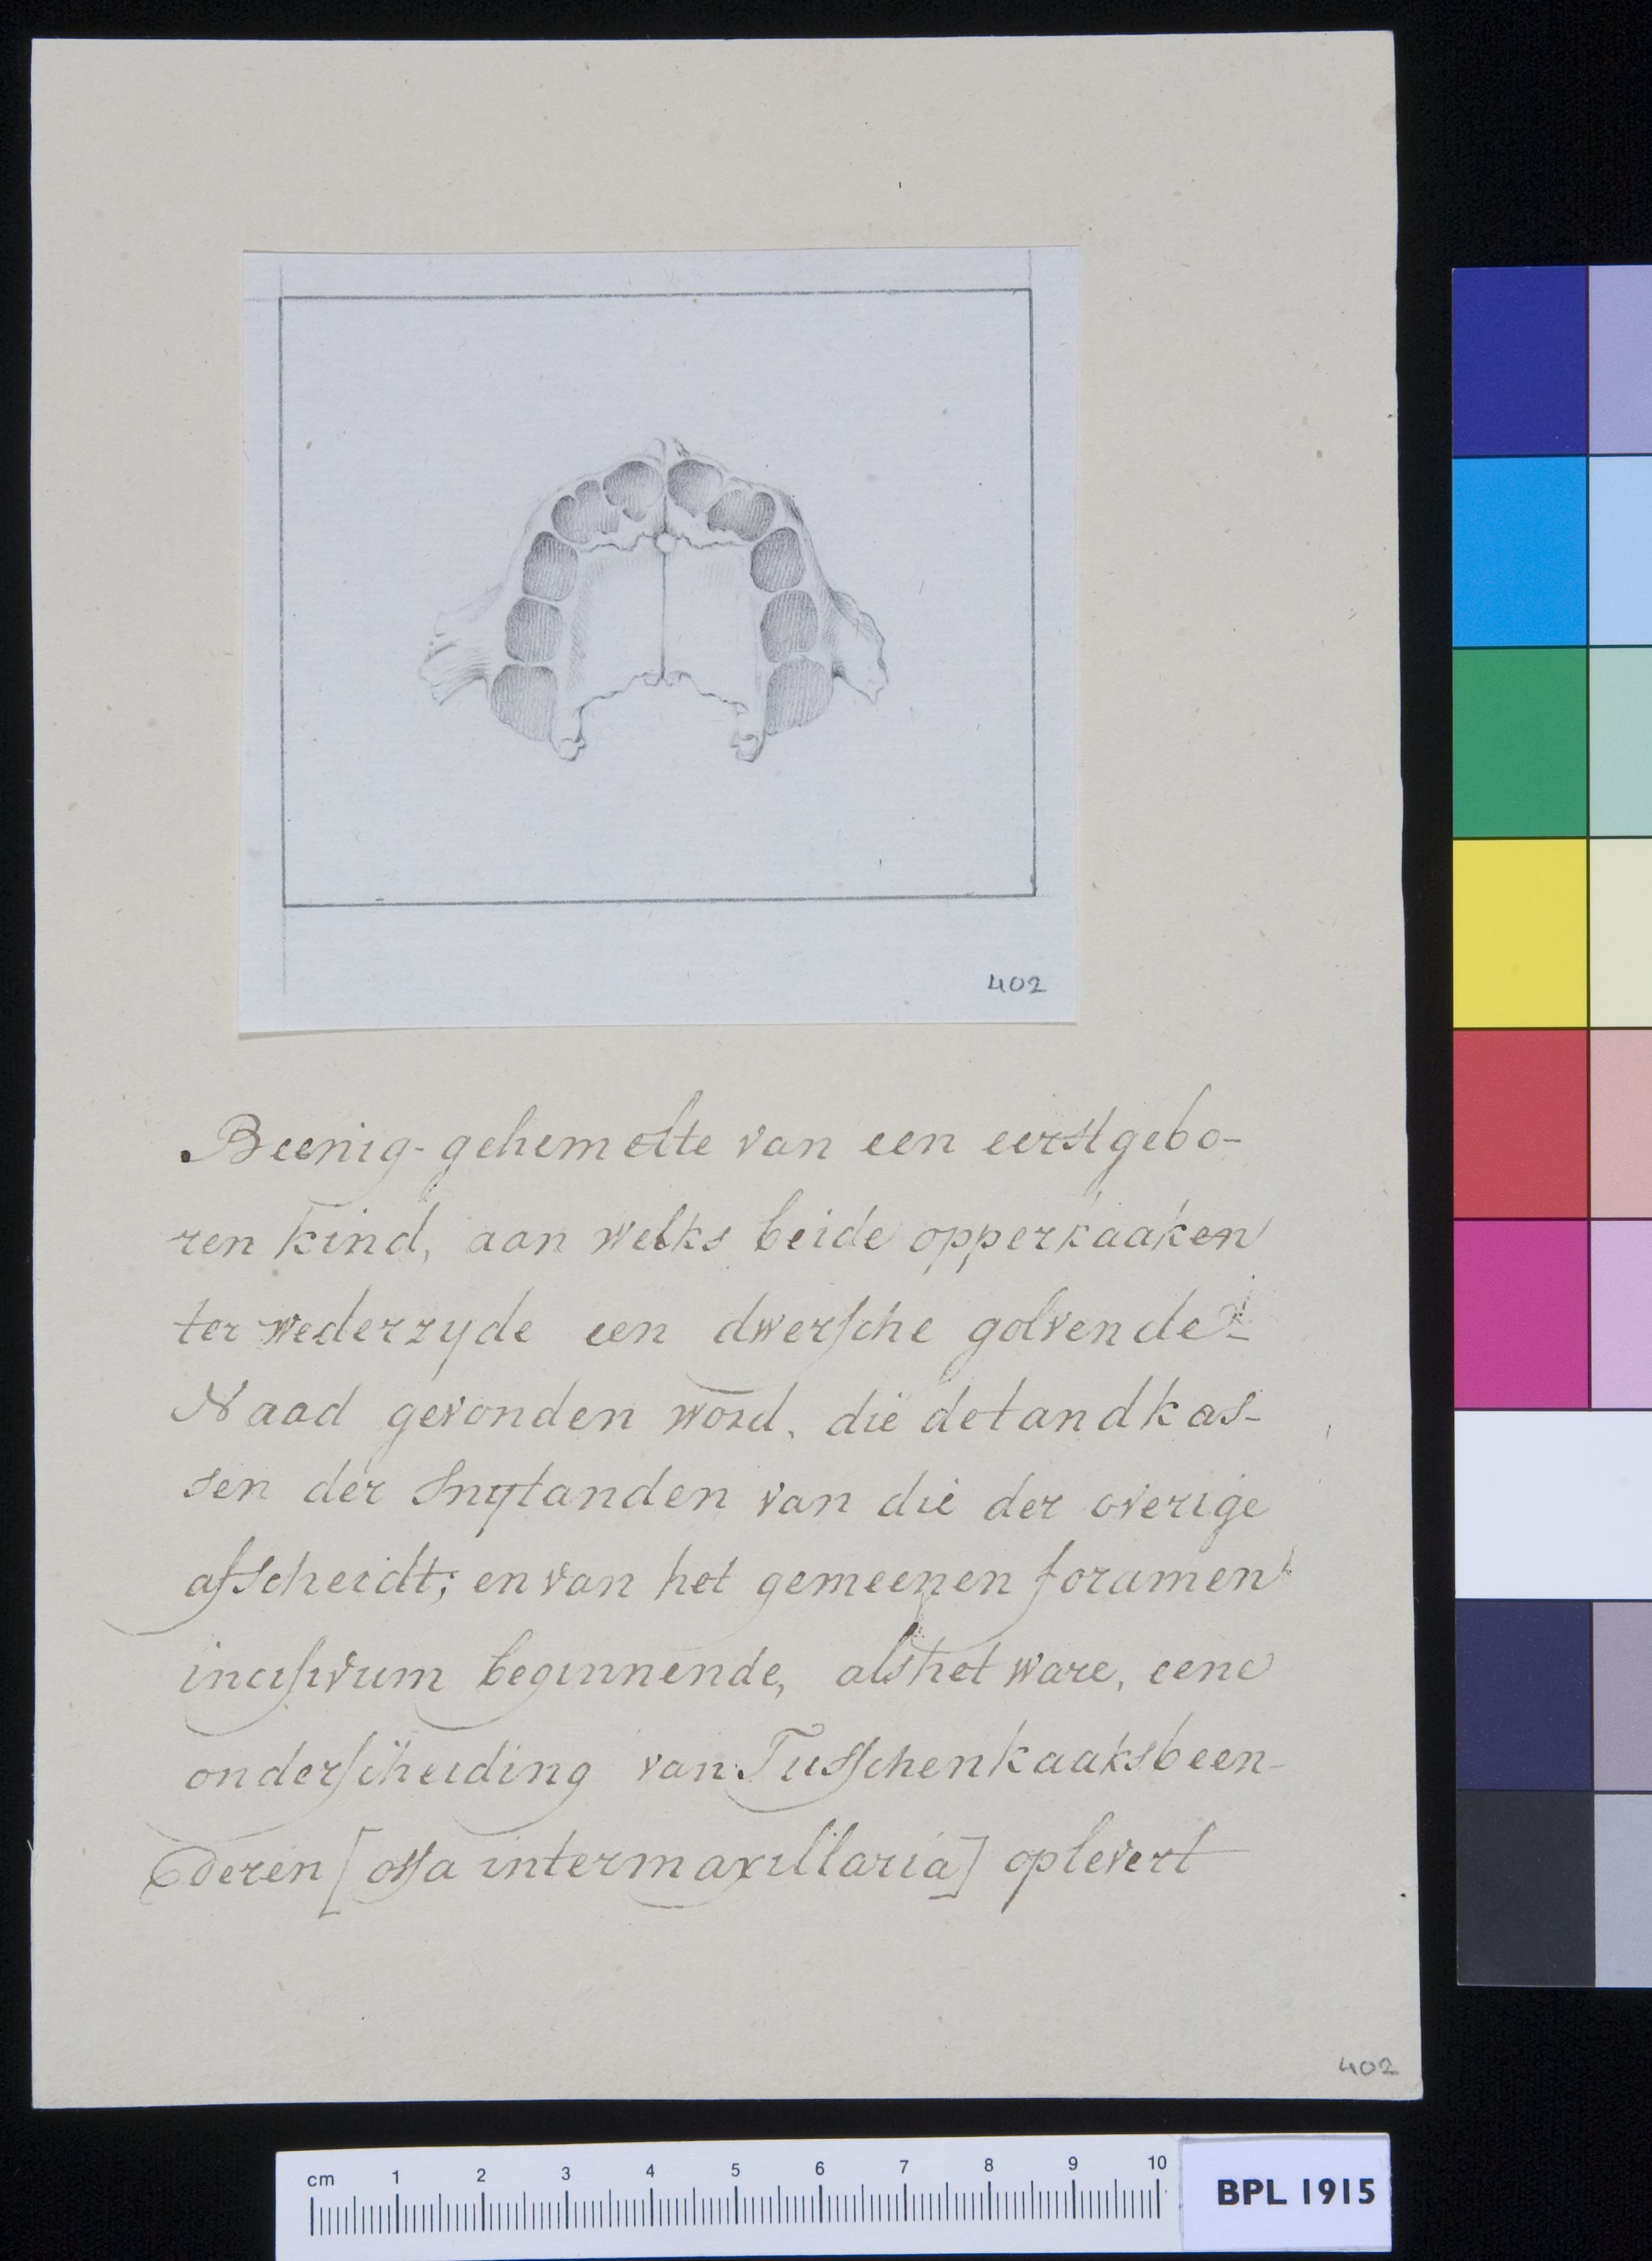 402
Beenig-gehemelte van een eerstgebo-
ren kind, aan welks beide opperkaaken
ter wederzyde een dwersche golvende
Naad gevonden word, die de tandkas-
sen der Snytanden van die der overige
afscheidt; en van het gemeenen foramen
incisivum beginnende, als het ware, eene
onderscheiding van Tusschenkaaksbeen-
deren [ossa intermaxillaria] oplevert
402
cm 1 2 3 4 5 6 7 8 9 10
BPL 1915